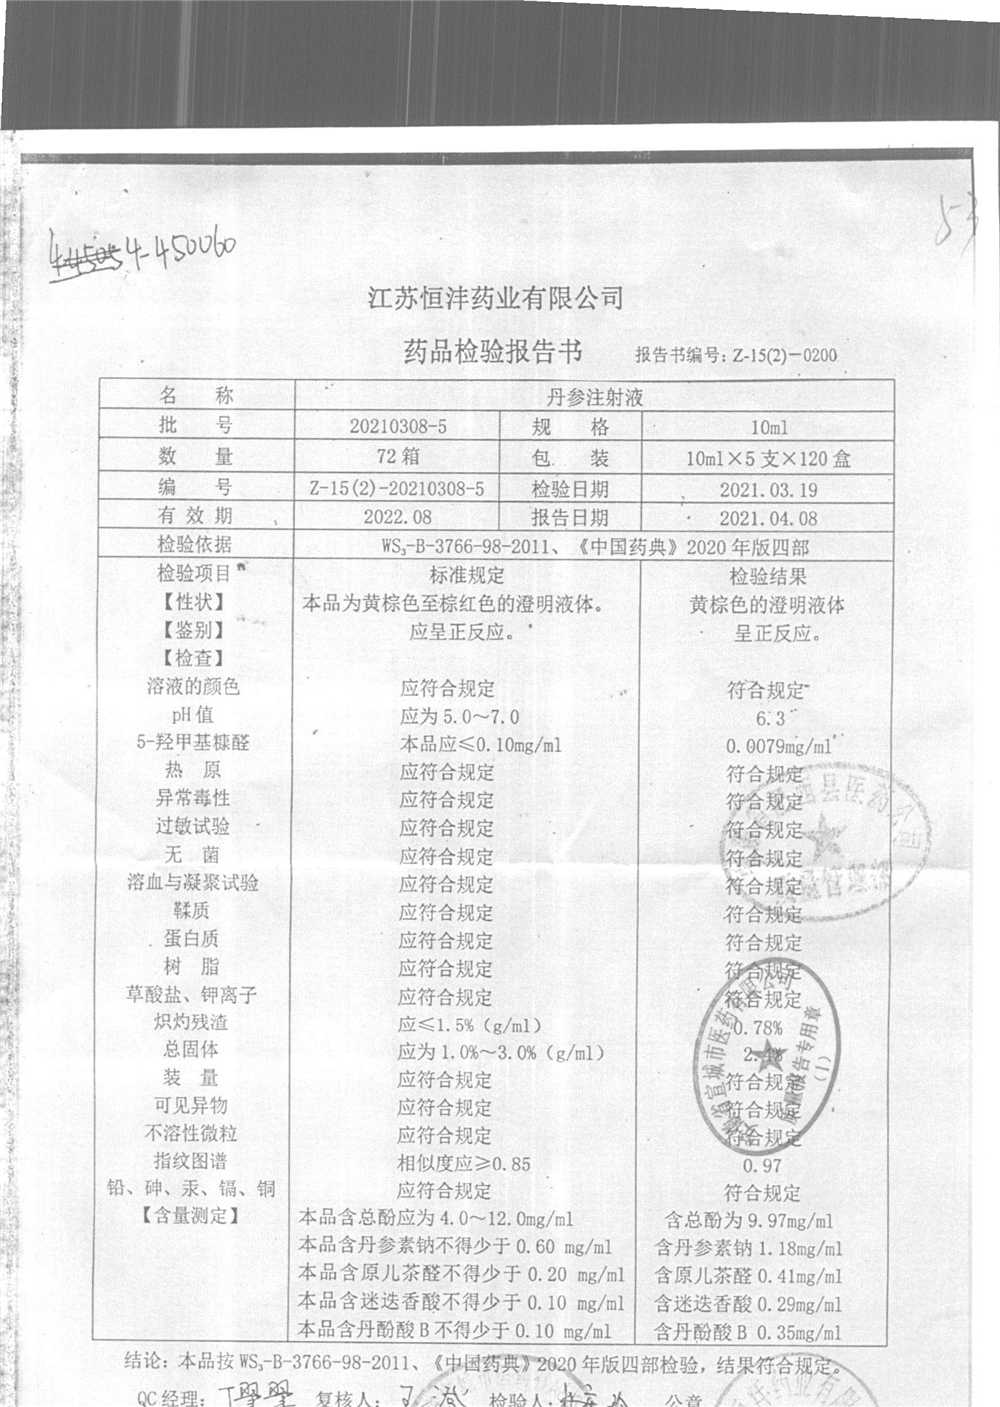 53
4-450060
江苏恒沣药业有限公司
药品检验报告书 报告书编号：Z-15(2)-0200
名 称 丹参注射液
批 号 20210308-5 规 格 10ml
数 量 72箱 包 装 10ml×5支×120盒
编 号 Z-15(2)-20210308-5 检验日期 2021.03.19
有效期 2022.08 报告日期 2021.04.08
检验依据 WS₃-B-3766-98-2011、《中国药典》2020年版四部
检验项目 标准规定 检验结果
【性状】 本品为黄棕色至棕红色的澄明液体。 黄棕色的澄明液体
【鉴别】 应呈正反应。 呈正反应。
【检查】
溶液的颜色 应符合规定 符合规定
pH值 应为5.0～7.0 6.3
5-羟甲基糠醛 本品应≤0.10mg/ml 0.0079mg/ml
热 原 应符合规定 符合规定
异常毒性 应符合规定 符合规定
过敏试验 应符合规定 符合规定
无 菌 应符合规定 符合规定
溶血与凝聚试验 应符合规定 符合规定
鞣质 应符合规定 符合规定
蛋白质 应符合规定 符合规定
树 脂 应符合规定 符合规定
草酸盐、钾离子 应符合规定 符合规定
炽灼残渣 应≤1.5%（g/ml） 0.78%
总固体 应为1.0%～3.0%（g/ml）
装 量 应符合规定 符合规定
可见异物 应符合规定 符合规定
不溶性微粒 应符合规定 符合规定
指纹图谱 相似度应≥0.85 0.97
铅、砷、汞、镉、铜 应符合规定 符合规定
【含量测定】 本品含总酚应为4.0～12.0mg/ml 含总酚为9.97mg/ml
本品含丹参素钠不得少于0.60 mg/ml 含丹参素钠1.18mg/ml
本品含原儿茶醛不得少于0.20 mg/ml 含原儿茶醛0.41mg/ml
本品含迷迭香酸不得少于0.10 mg/ml 含迷迭香酸0.29mg/ml
本品含丹酚酸B不得少于0.10 mg/ml 含丹酚酸B 0.35mg/ml
结论：本品按WS₃-B-3766-98-2011、《中国药典》2020年版四部检验，结果符合规定。
QC经理： 复核人： 检验人： 公章
安徽省宣城市医药有限公司
质量报告专用章
(1)